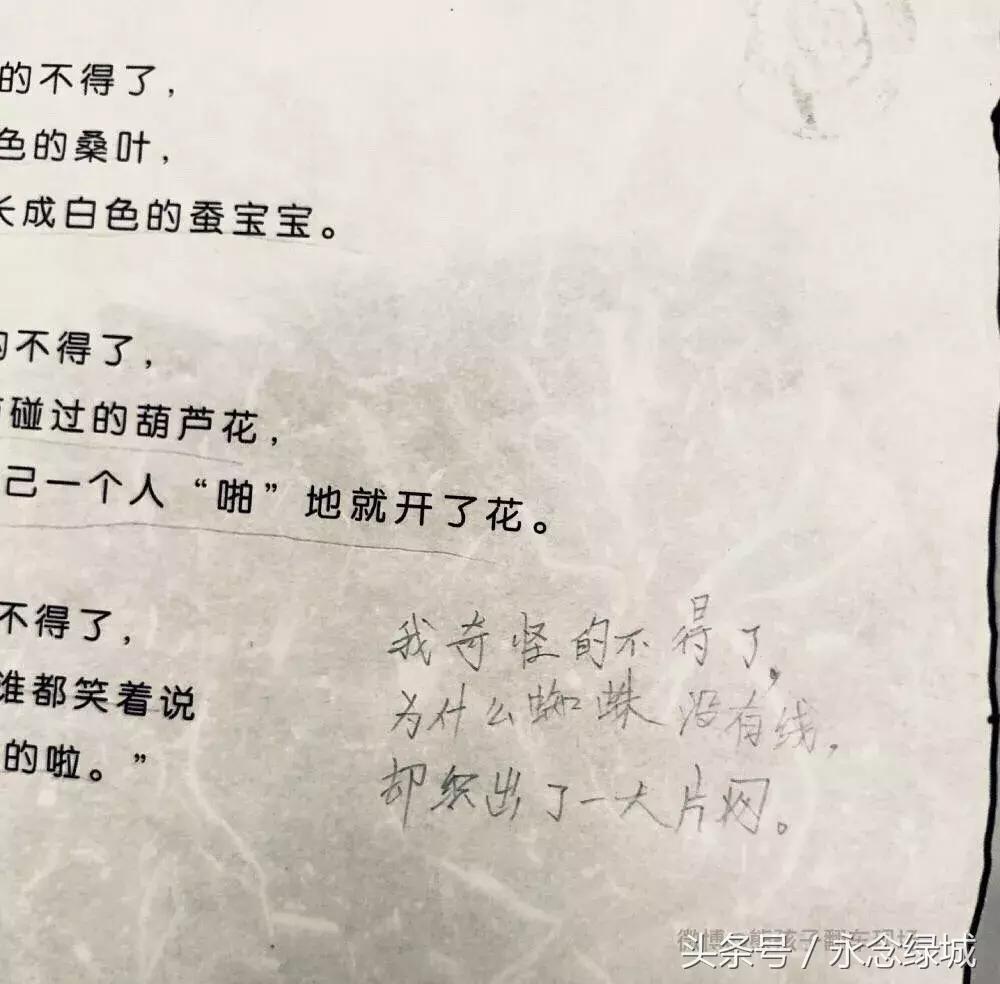 的不得了，
色的桑叶，
长成白色的蚕宝宝。
的不得了，
碰过的葫芦花，
己一个人“啪”地就开了花。
不得了，
谁都笑着说
的啦。”
我奇怪的不得了，
为什么蜘蛛没有线，
却织出了一大片网。
微博 熊孩子翻车现场
头条号 / 永念绿城